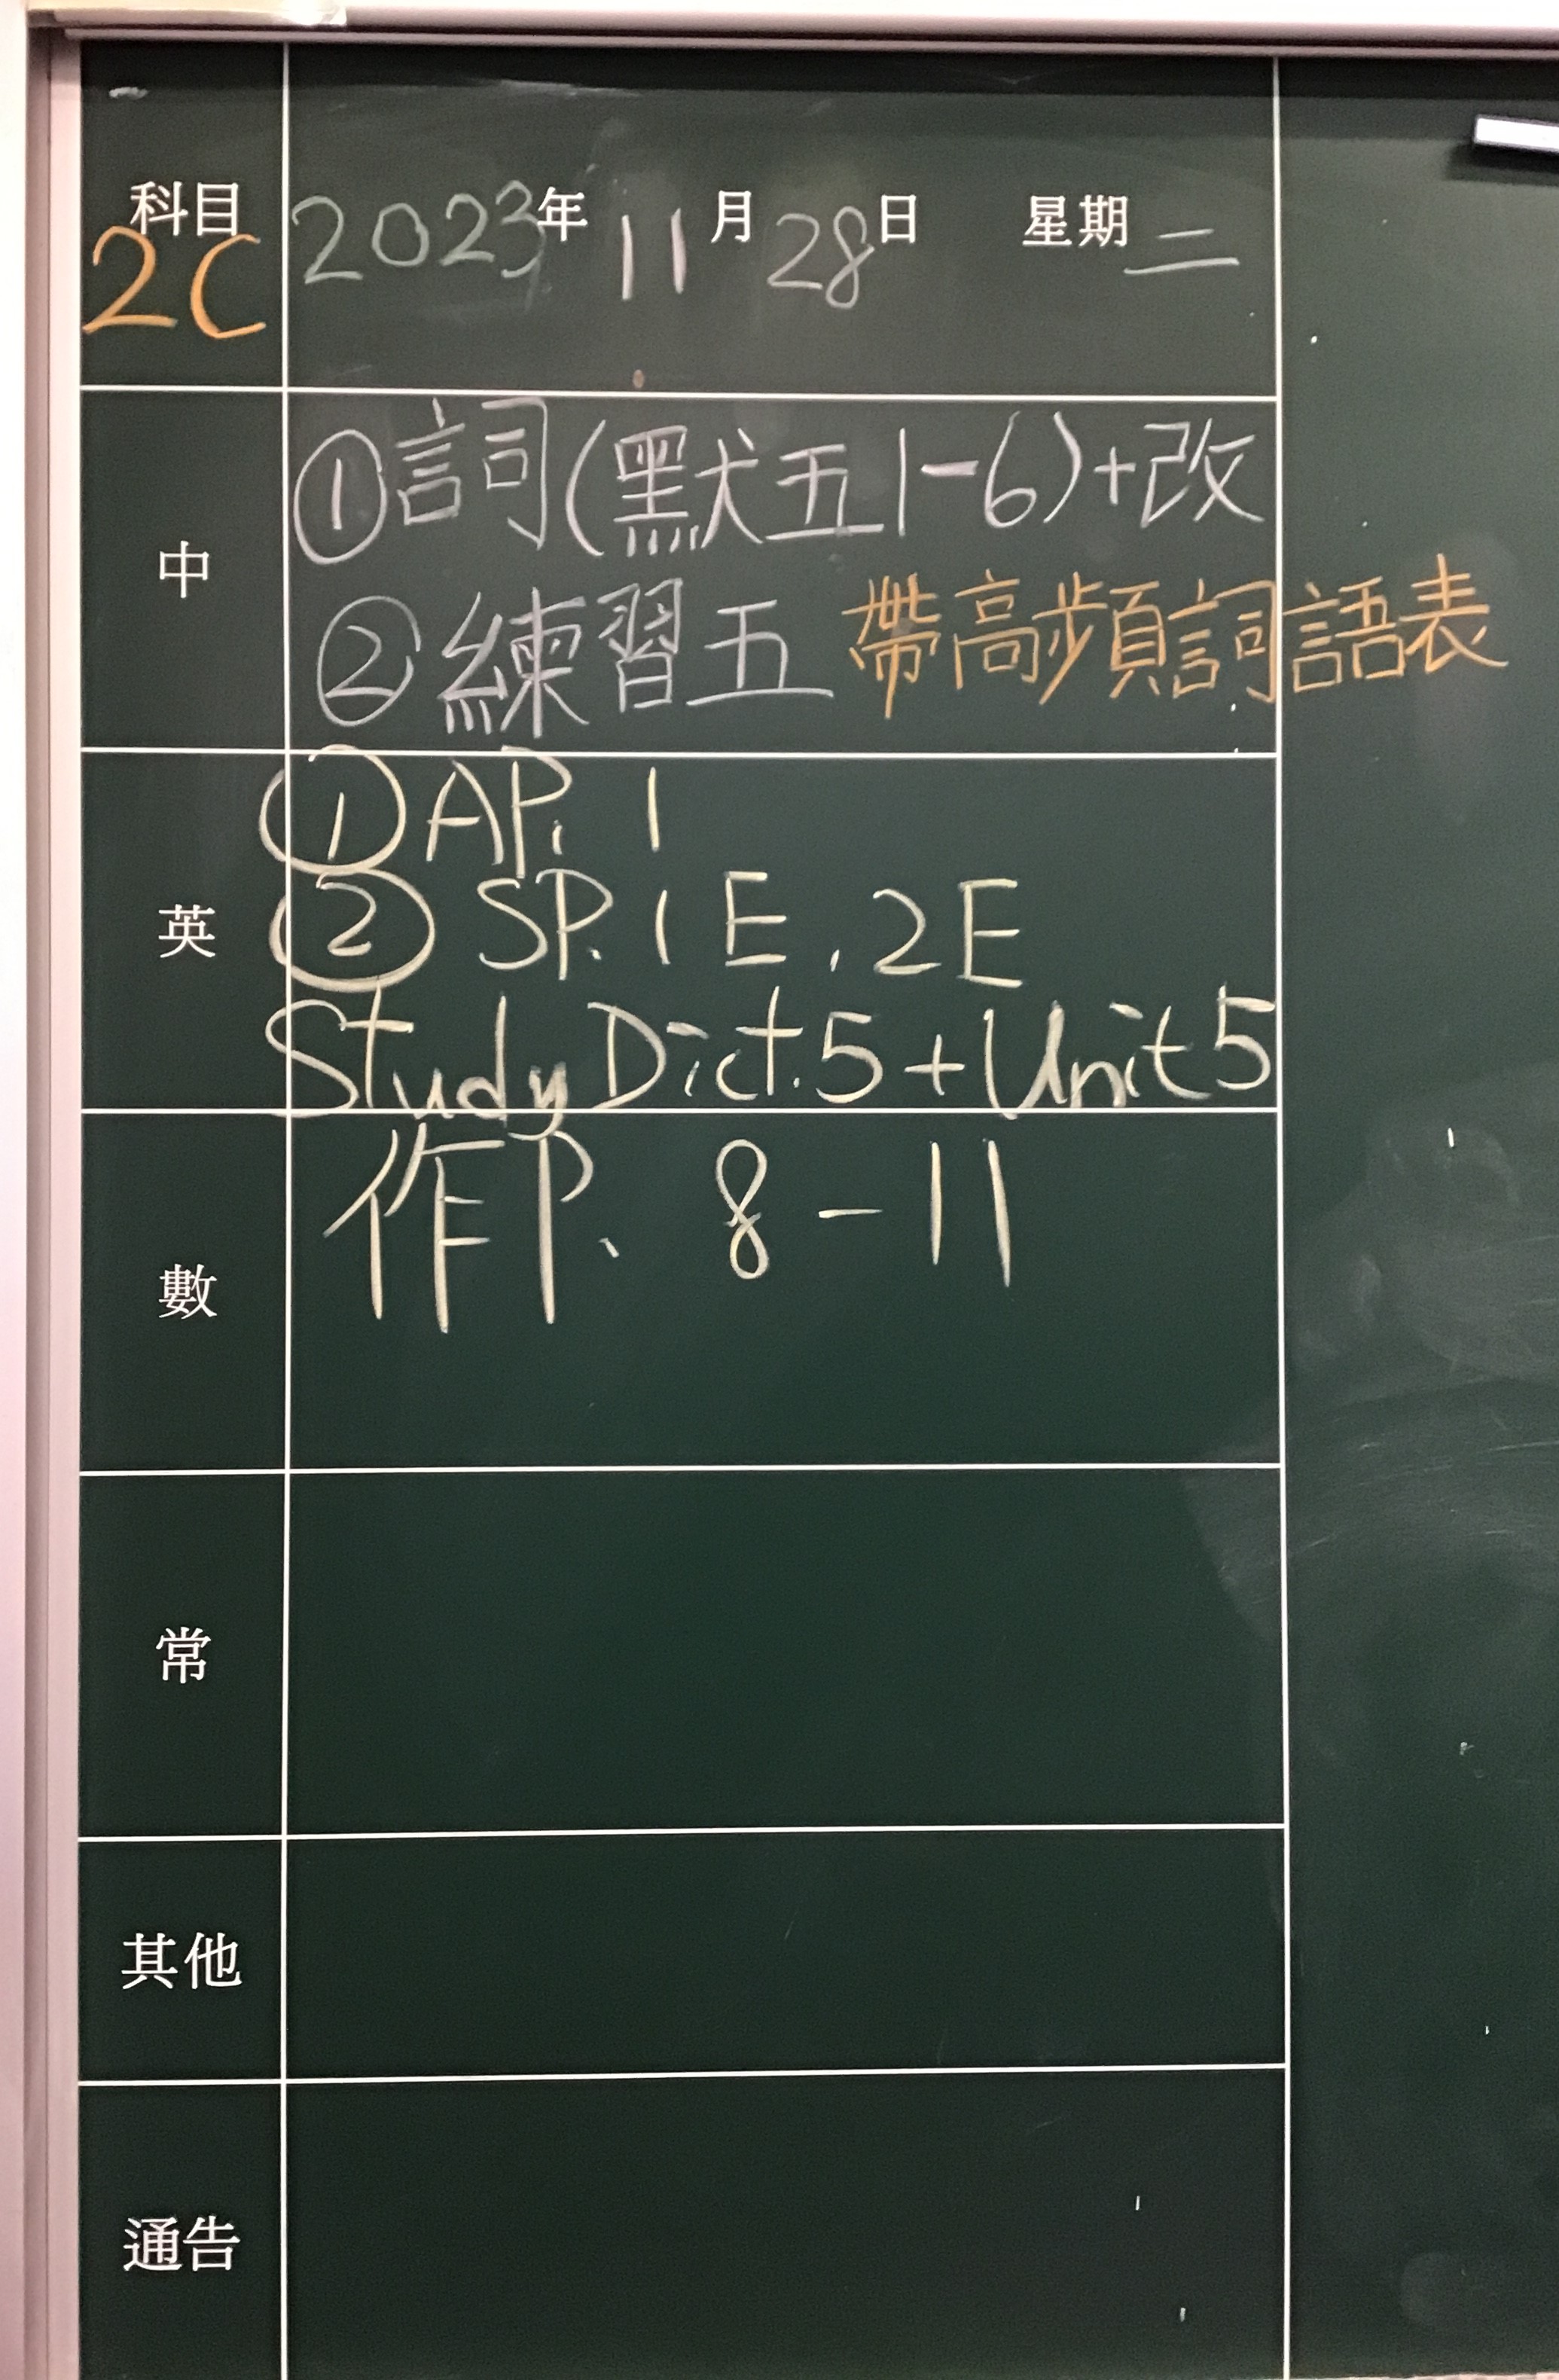 科目 2023年 11月28日 星期二
2C
中
①詞(默五1-6)+改
②練習五 帶高步頁詞語表
英
①AP. 1
②SP. 1E, 2E
Study Dict. 5 + Unit 5
數
作P. 8-11
常
其他
通告